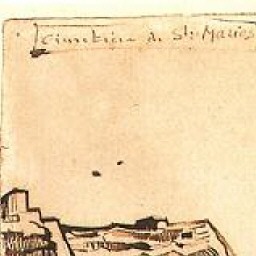 cimetière de Stes Maries